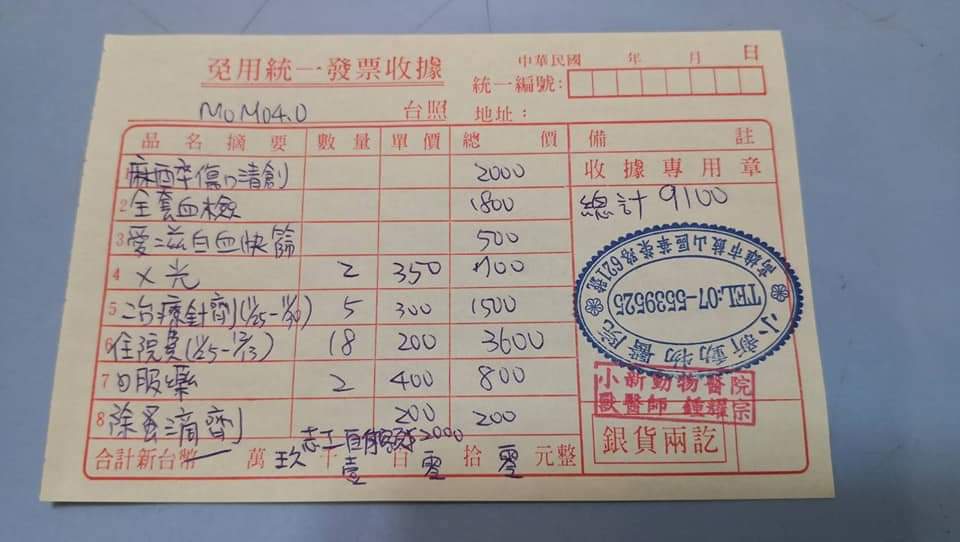 免用統一發票收據
中華民國 年 月 日
統一編號:
MOMO4.0 台照 地址:
品名摘要 數量 單價 總價 備註
麻醉傷口清創 2000
收據專用章
2 全套血檢 1800
總計 9100
3 愛滋白血快篩 500
4 X光 2 350 700
5 治療針劑(11/25-11/30) 5 300 1500
6 住院費(11/25-12/13) 18 200 3600
7 口服藥 2 400 800
8 除蚤滴劑 200 200
志工 2000
合計新台幣 萬 玖 千 壹 百 零 拾 零 元整
小新動物醫院
TEL:07-5539525
高雄市鼓山區華榮路621號
小新動物醫院
獸醫師 鍾耀宗
銀貨兩訖